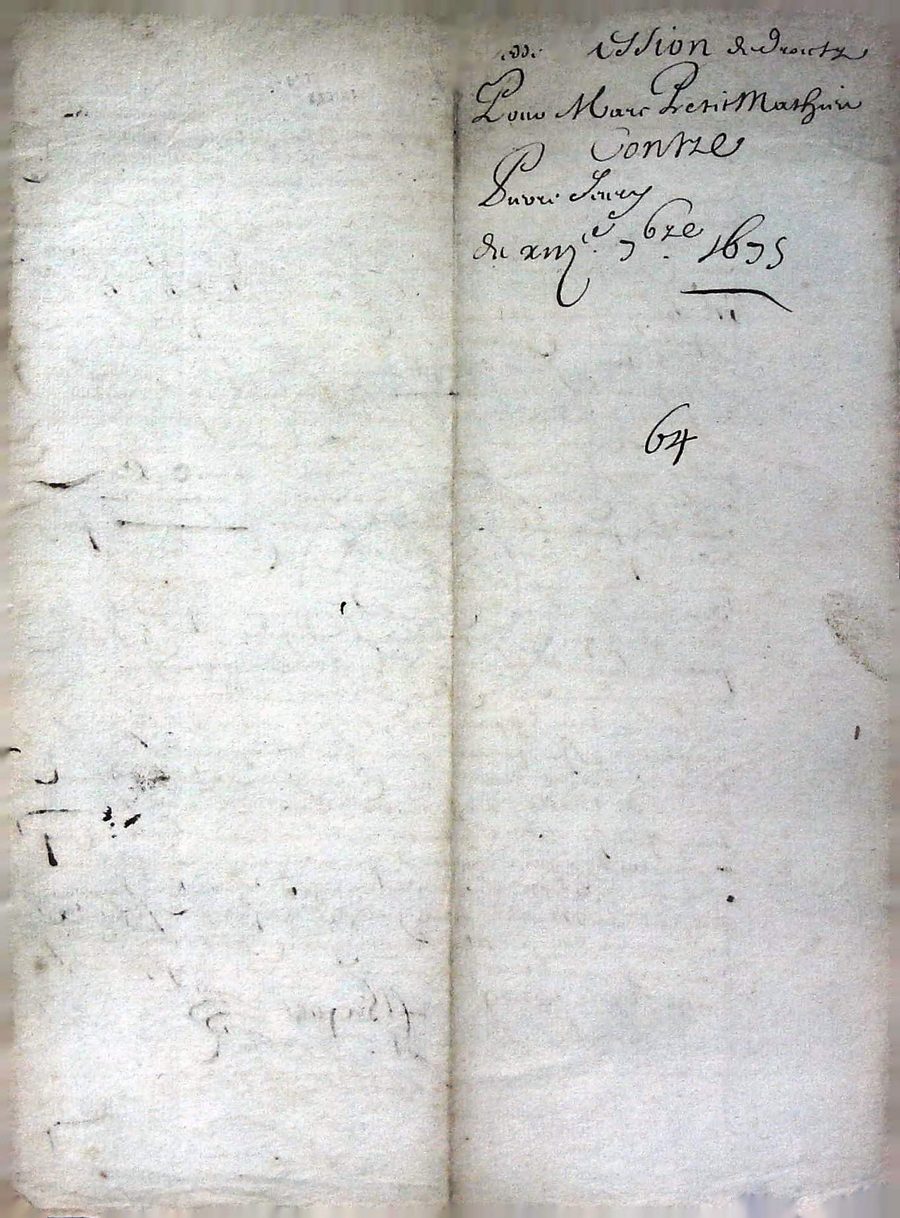 ession de droictz
Pour Marc Petit Mathieu
Contre
Pierre
du xiiij.e 7bre 1675
64